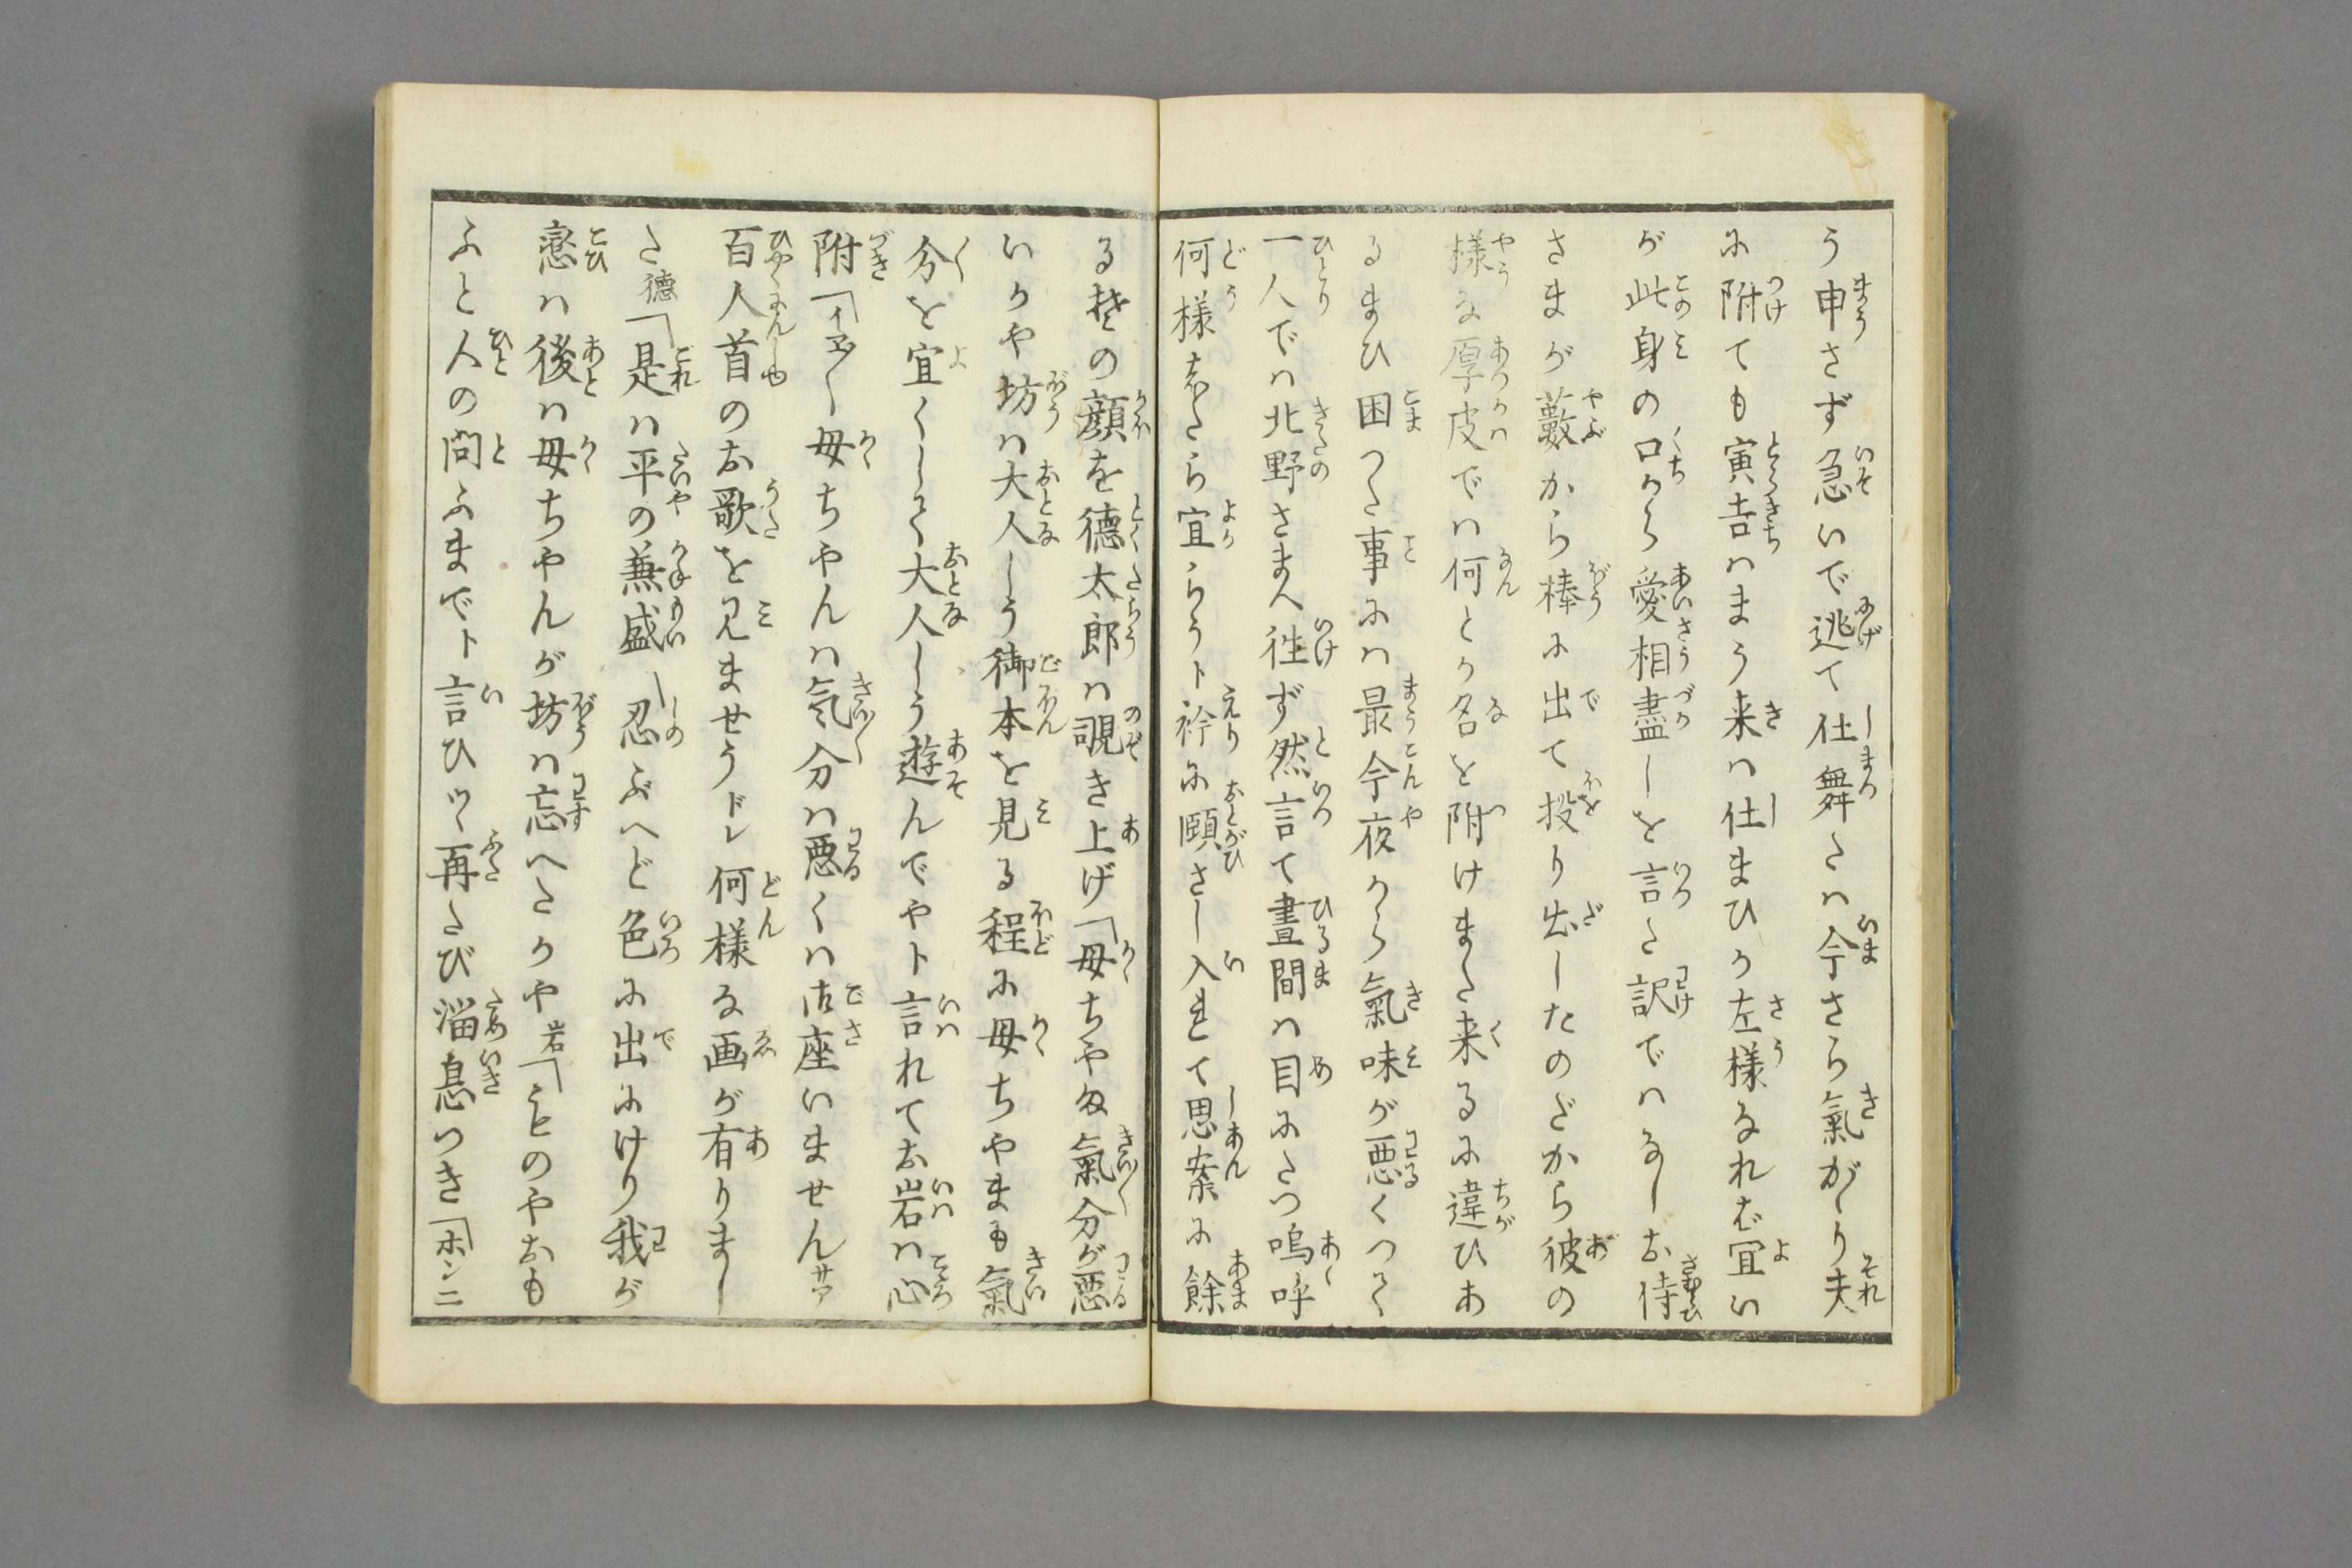 う申さず急いで逃て仕舞たハ今さら氣がゝり夫
に附ても寅吉ハまう来ハ仕まひか左様なれバ宜い
が此身の口から愛相盡しを言た訳でハなしお侍
さまが藪から棒に出て投り出したのだから彼の
様な厚皮でハ何とか名を附けまた来るに違ひあ
るまひ困つた事にハ最今夜から氣味が悪くつて
一人でハ北野さまへ徃ず然言て晝間ハ目にたつ嗚呼
何様したら宜らうト衿に頤さし入れて思案に餘
る其の顔を徳太郎ハ覗き上げ「母ちやな氣分が悪
いかや坊ハ大人しう御本を見る程に母ちやまも氣
分を宜くして大人しう遊んでやト言れてお岩ハ心
附「イヱ〳〵母ちやんハ気分ハ悪くハ御座いませんサア
百人首のお歌を見ませうドレ何様な画が有りまし
た 徳「是ハ平の兼盛「忍ぶへど色に出にけり我が
戀ハ後ハ母ちやんが坊ハ忘へたかや 岩「ものやおも
ふと人の問ふまでト言ひツヽ再たび溜息つき「ホンニ